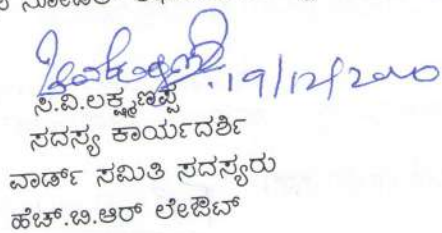 .19/12/2020
ಸಿ.ವಿ.ಲಕ್ಷ್ಮಣಪ್ಪ
ಸದಸ್ಯ ಕಾರ್ಯದರ್ಶಿ
ವಾರ್ಡ್ ಸಮಿತಿ ಸದಸ್ಯರು
ಹೆಚ್.ಬಿ.ಆರ್ ಲೇಔಟ್